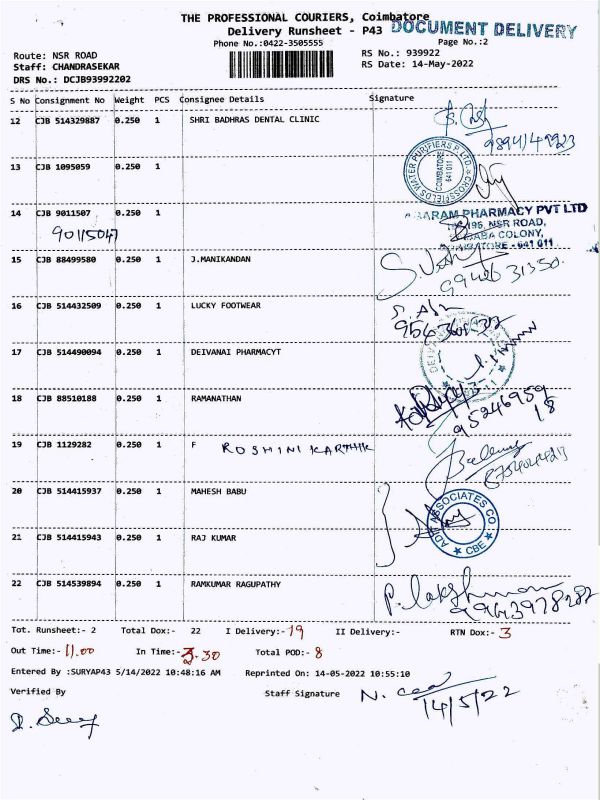 THE PROFESSIONAL COURIERS, Coimbatore
DOCUMENT DELIVERY
Delivery Runsheet - P43
Phone No.:0422-3505555
Page No.:2
Route: NSR ROAD
RS No.: 939922
Staff: CHANDRASEKAR
RS Date: 14-May-2022
DRS No.: DCJB93992202
S No Consignment No Weight PCS Consignee Details Signature
12 CJB 514329887 0.250 1 SHRI BADHRAS DENTAL CLINIC
13 CJB 1095059 0.250 1
CROSSFIELDS WATER PURIFIERS P LTD.
COIMBATORE
641 011
14 CJB 9011507 0.250 1
90115047
PHARMACY PVT LTD
NSR ROAD,
COLONY,
641 011
15 CJB 88499580 0.250 1 J.MANIKANDAN
16 CJB 514432509 0.250 1 LUCKY FOOTWEAR
17 CJB 514490094 0.250 1 DEIVANAI PHARMACYT
18 CJB 88510188 0.250 1 RAMANATHAN
9524695918
19 CJB 1129282 0.250 1 F ROSHINI KARTHIK
20 CJB 514415937 0.250 1 MAHESH BABU
ASSOCIATES CO
CBE
21 CJB 514415943 0.250 1 RAJ KUMAR
22 CJB 514539894 0.250 1 RAMKUMAR RAGUPATHY
P. Lakshmanan
9963978282
Tot. Runsheet:- 2 Total Dox:- 22 I Delivery:- 19 II Delivery:- RTN Dox:- 3
Out Time:- 11.00 In Time:- 3.30 Total POD:- 8
Entered By :SURYAP43 5/14/2022 10:48:16 AM Reprinted On: 14-05-2022 10:55:10
Verified By Staff Signature
14/5/22